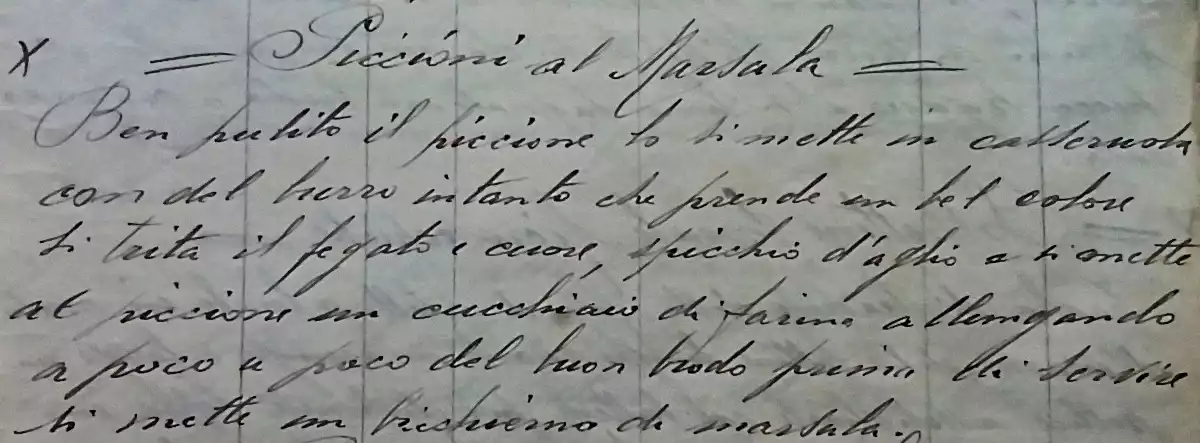 X = Piccioni al Marsala =
Ben pulito il piccione lo si mette in casseruola
con del burro intanto che prende un bel colore
si trita il fegato e cuore, spicchio d'aglio e si mette
al piccione un cucchiaio di farina allungando
a poco a poco del buon brodo prima di servire
si mette un bicchierino di marsala.